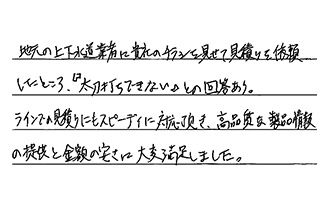 地元の上下水道業者に貴社のチラシを見せて見積りを依頼
したところ、『太刀打ちできない』との回答あり。
ラインでの見積りにもスピーディに対応頂き、高品質な製品情報
の提供と金額の安さに大変満足しました。